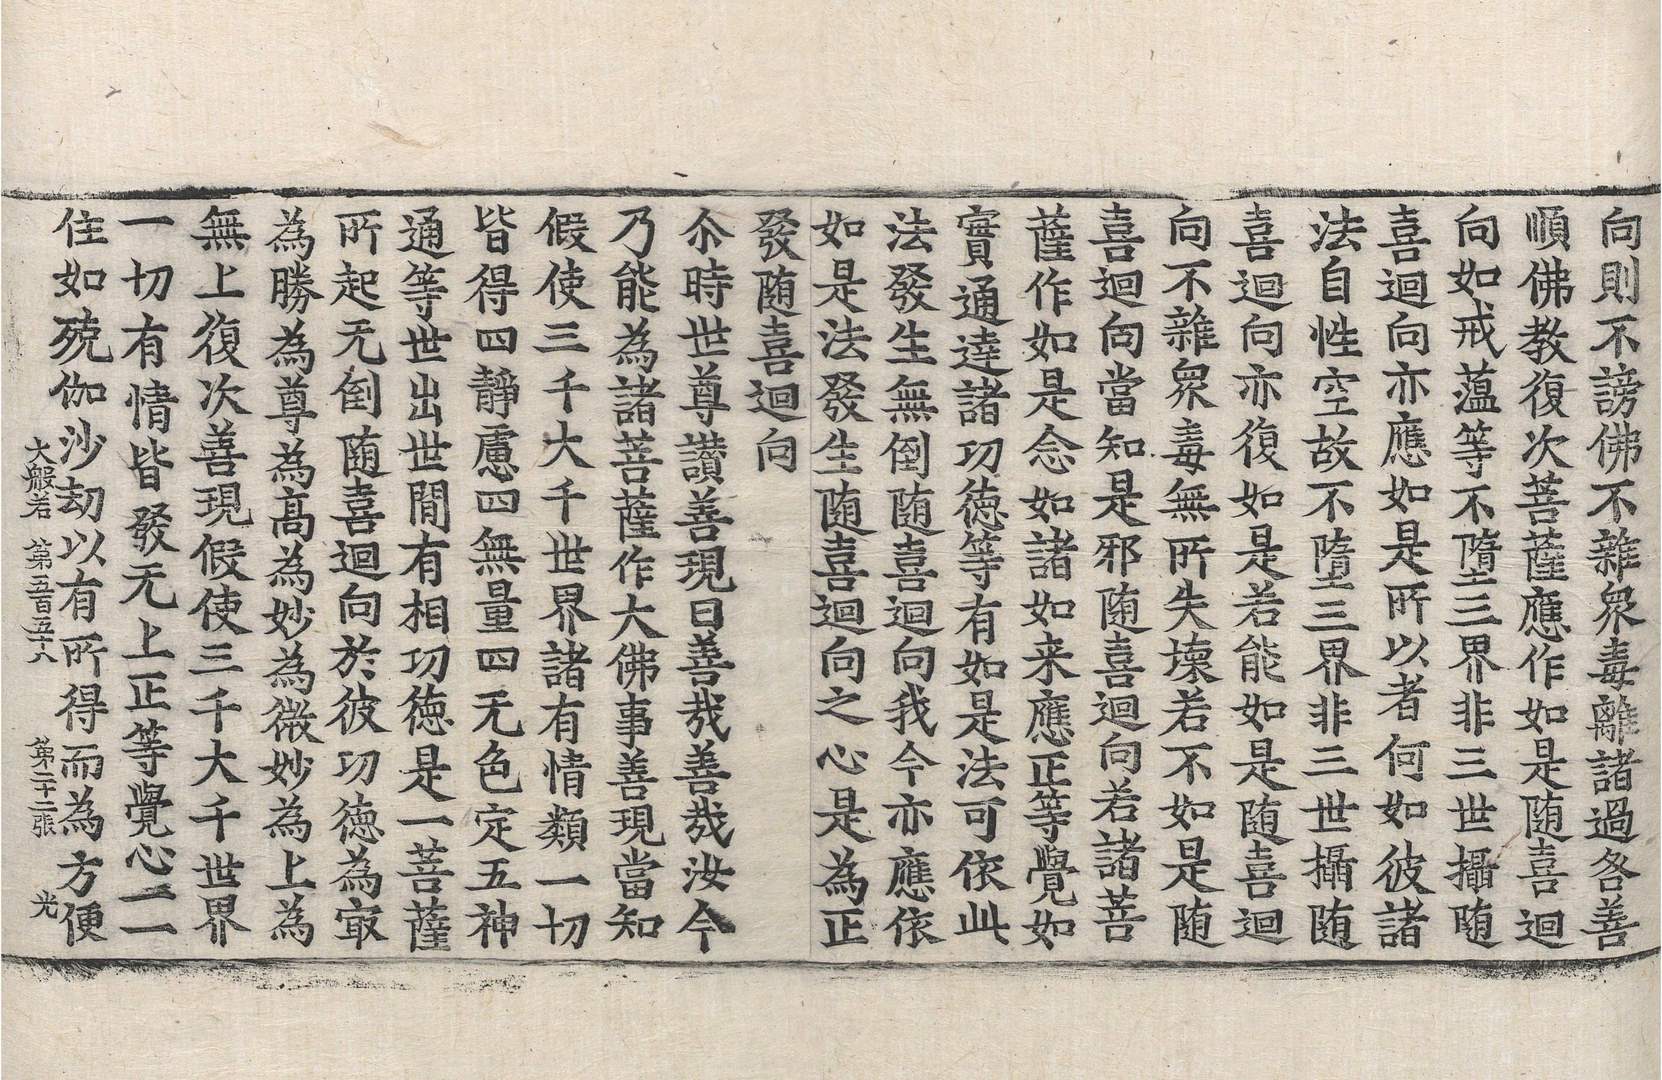 向則不謗佛不雜衆毒離諸過咎善
順佛教復次菩薩應作如是随喜迴
向如戒蕰等不墮三界非三世攝随
喜迴向亦應如是所以者何如彼諸
法自性空故不墮三界非三世攝随
喜迴向亦復如是若能如是随喜迴
向不雜衆毒無所失壞若不如是随
喜迴向當知是邪随喜迴向若諸菩
薩作如是念如諸如来應正等覺如
實通達諸功徳等有如是法可依此
法發生無倒随喜迴向我今亦應依
如是法發生随喜迴向之心是為正
發随喜迴向
尒時世尊讃善現曰善㢤善㢤汝今
乃能為諸菩薩作大佛事善現當知
假使三千大千世界諸有情類一切
皆得四靜慮四無量四无色定五神
通等世出世間有相功徳是一菩薩
所起无倒随喜迴向於彼功徳為㝡
為勝為尊為髙為妙為微妙為上為
無上復次善現假使三千大千世界
一切有情皆發无上正等覺心一一
住如殑伽沙劫以有所得而為方便
大般若 第五百五十八 第二十二張 光